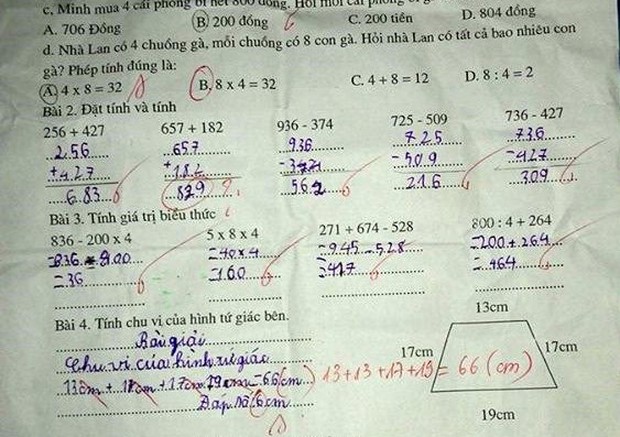 c. Minh mua 4 cái phong bì hết 800 đồng. Hỏi mỗi cái phong bì
A. 706 Đồng B. 200 đồng C. 200 tiền D. 804 đồng
d. Nhà Lan có 4 chuồng gà, mỗi chuồng có 8 con gà. Hỏi nhà Lan có tất cả bao nhiêu con
gà? Phép tính đúng là:
A. 4 x 8 = 32 B. 8 x 4 = 32 C. 4 + 8 = 12 D. 8 : 4 = 2
Bài 2. Đặt tính và tính
256 + 427 657 + 182 936 - 374 725 - 509 736 - 427
256 657 936 725 736
+427 +182 -374 -509 -427
683 829 562 216 309
Bài 3. Tính giá trị biểu thức
836 - 200 x 4 5 x 8 x 4 271 + 674 - 528 800 : 4 + 264
=836 - 800 =40 x 4 =945 - 528 =200 + 264
=36 =160 =417 =464
Bài 4. Tính chu vi của hình tứ giác bên.
13cm
Bài giải
17cm 17cm
Chu vi của hình tứ giác
13cm + 17cm + 17cm 19cm = 66(cm) 13+13+17+19 = 66 (cm)
Đáp số 6cm
19cm